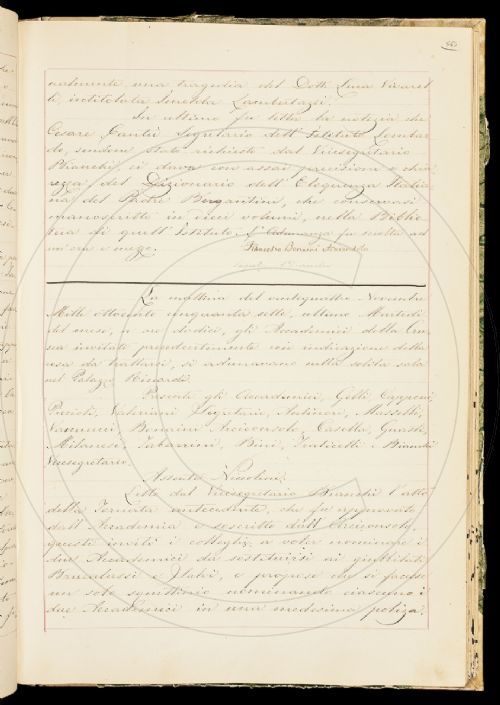 nalmente una tragedia del Dott. Luca Vivarel
li, intitolata Imelda Lambertazzi.
In ultimo fu letta la notizia che
Cesare Cantù Segretario dell'Istituto Lombar
do, sendone stato richiesto dal Vicesegretario
Bianchi, ci dava con assai precisione e chia
rezza del Dizionario dell'Eloquenza Italia
na del Padre Bergantini, che conservasi
manoscritto in dieci volumi, nella Biblio
teca di quell'Istituto. L'Adunanza fu sciolta ad
un'ora e mezzo. Francesco Bonaini Arciconsolo
La mattina del ventiquattro Novembre
Mille ottocento cinquanta sette, ultimo Martedì
del mese, a ore dodici, gli Accademici della Cru
sca invitati precedentemente con indicazione della
cosa da trattarsi, si adunarono nella solita sala
nel Palazzo Rinardi.
Presenti gli Accademici, Gelli, Capponi,
Puccioti, Valeriani Segretario, Antinori, Masselli,
Vannucci, Bonaini Arciconsolo, Casella, Guasti,
Milanesi, Tabarrini, Bini, Fraticelli e Bianchi
Vicesegretario.
Assente Nicolini.
Letto dal Vicesegretario Bianchi l'atto
della Tornata antecedente, che fu approvato
dall'Accademia e soscritto dall'Arciconsolo,
questi invitò i colleghi a voler nominare i
due Accademici da sostituirsi ai giubbilati
Barendassi e Zlabi, e propose che si facesse
un solo squittinio nominando ciascuno i
due Accademici in una medesima polizza.